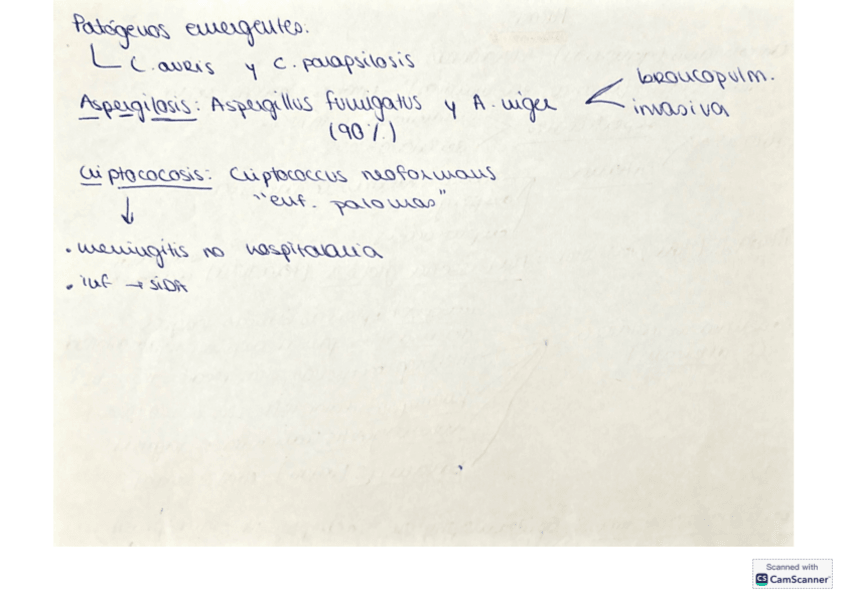 Patógenos emergentes:
C. aureis y C. parapsilosis
Aspergilosis: Aspergillus fumigatus y A. niger
broncopulm.
invasiva
(90%)
Criptococosis: Criptococcus neoformans
"enf. palomas"
• meningitis no hospitalaria
• inf → SIDA
Scanned with
CS CamScanner